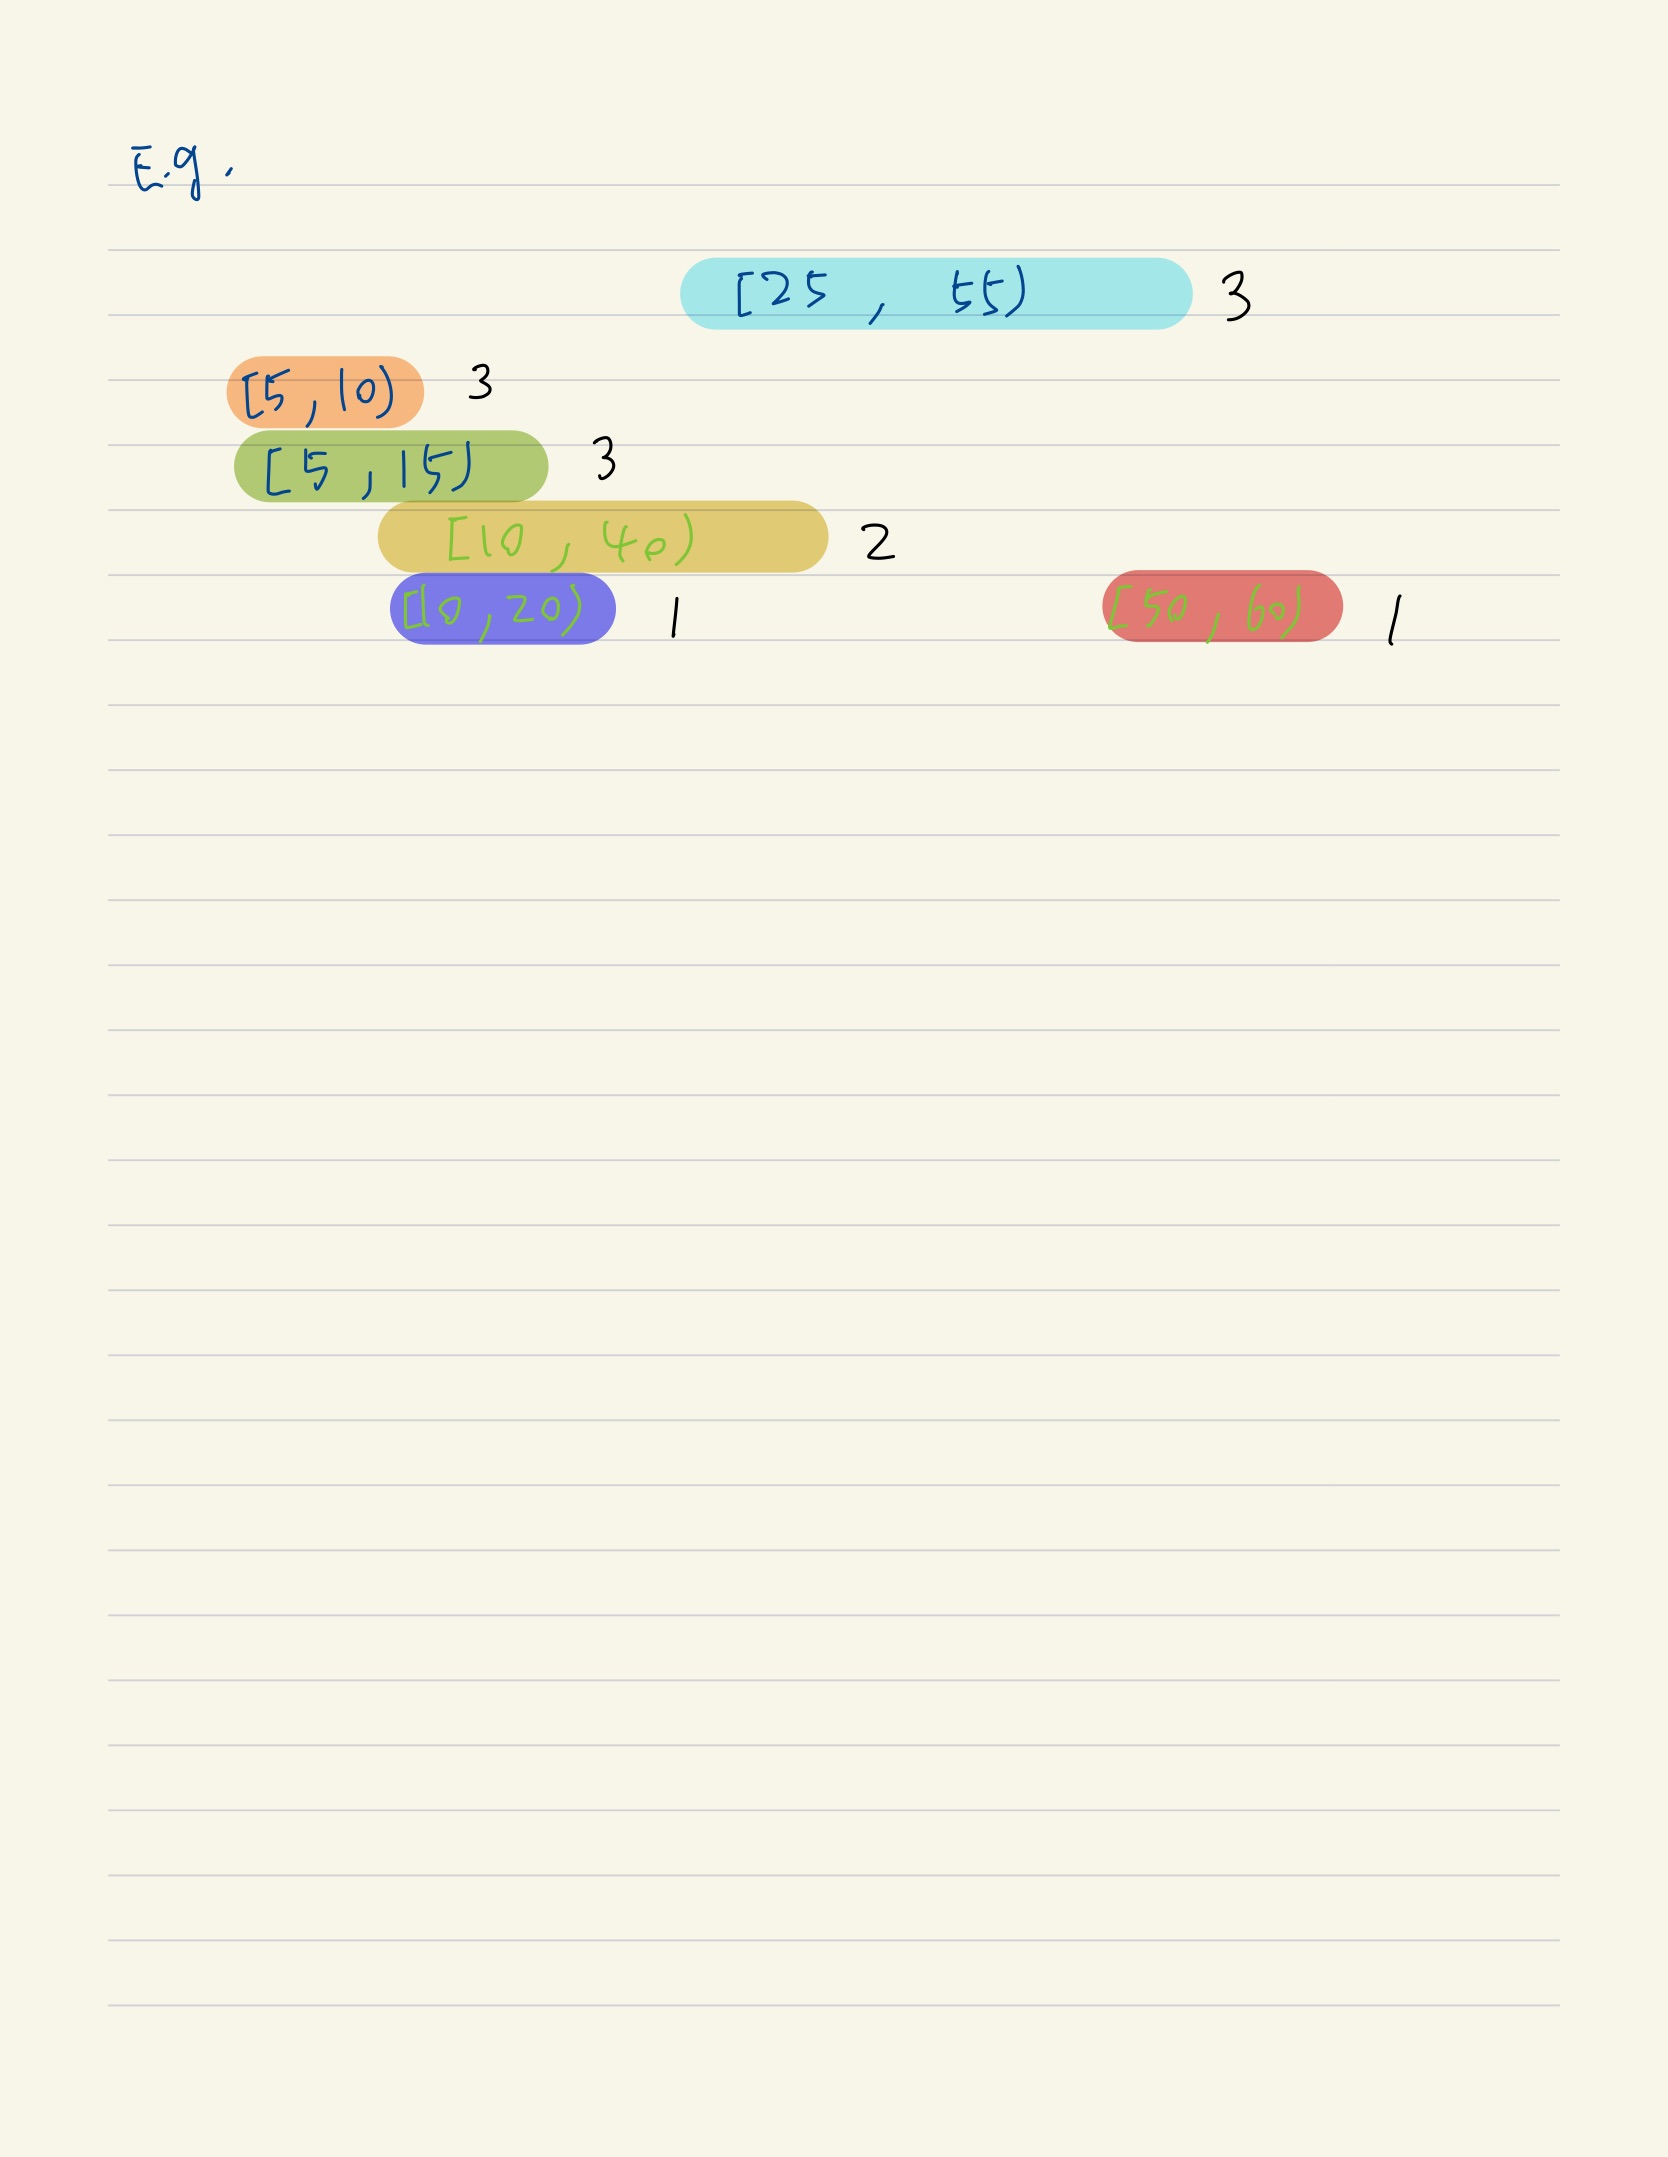 E.g.
[25, 55) 3
[5, 10) 3
[5, 15) 3
[10, 40) 2
[10, 20) 1 [50, 60) 1